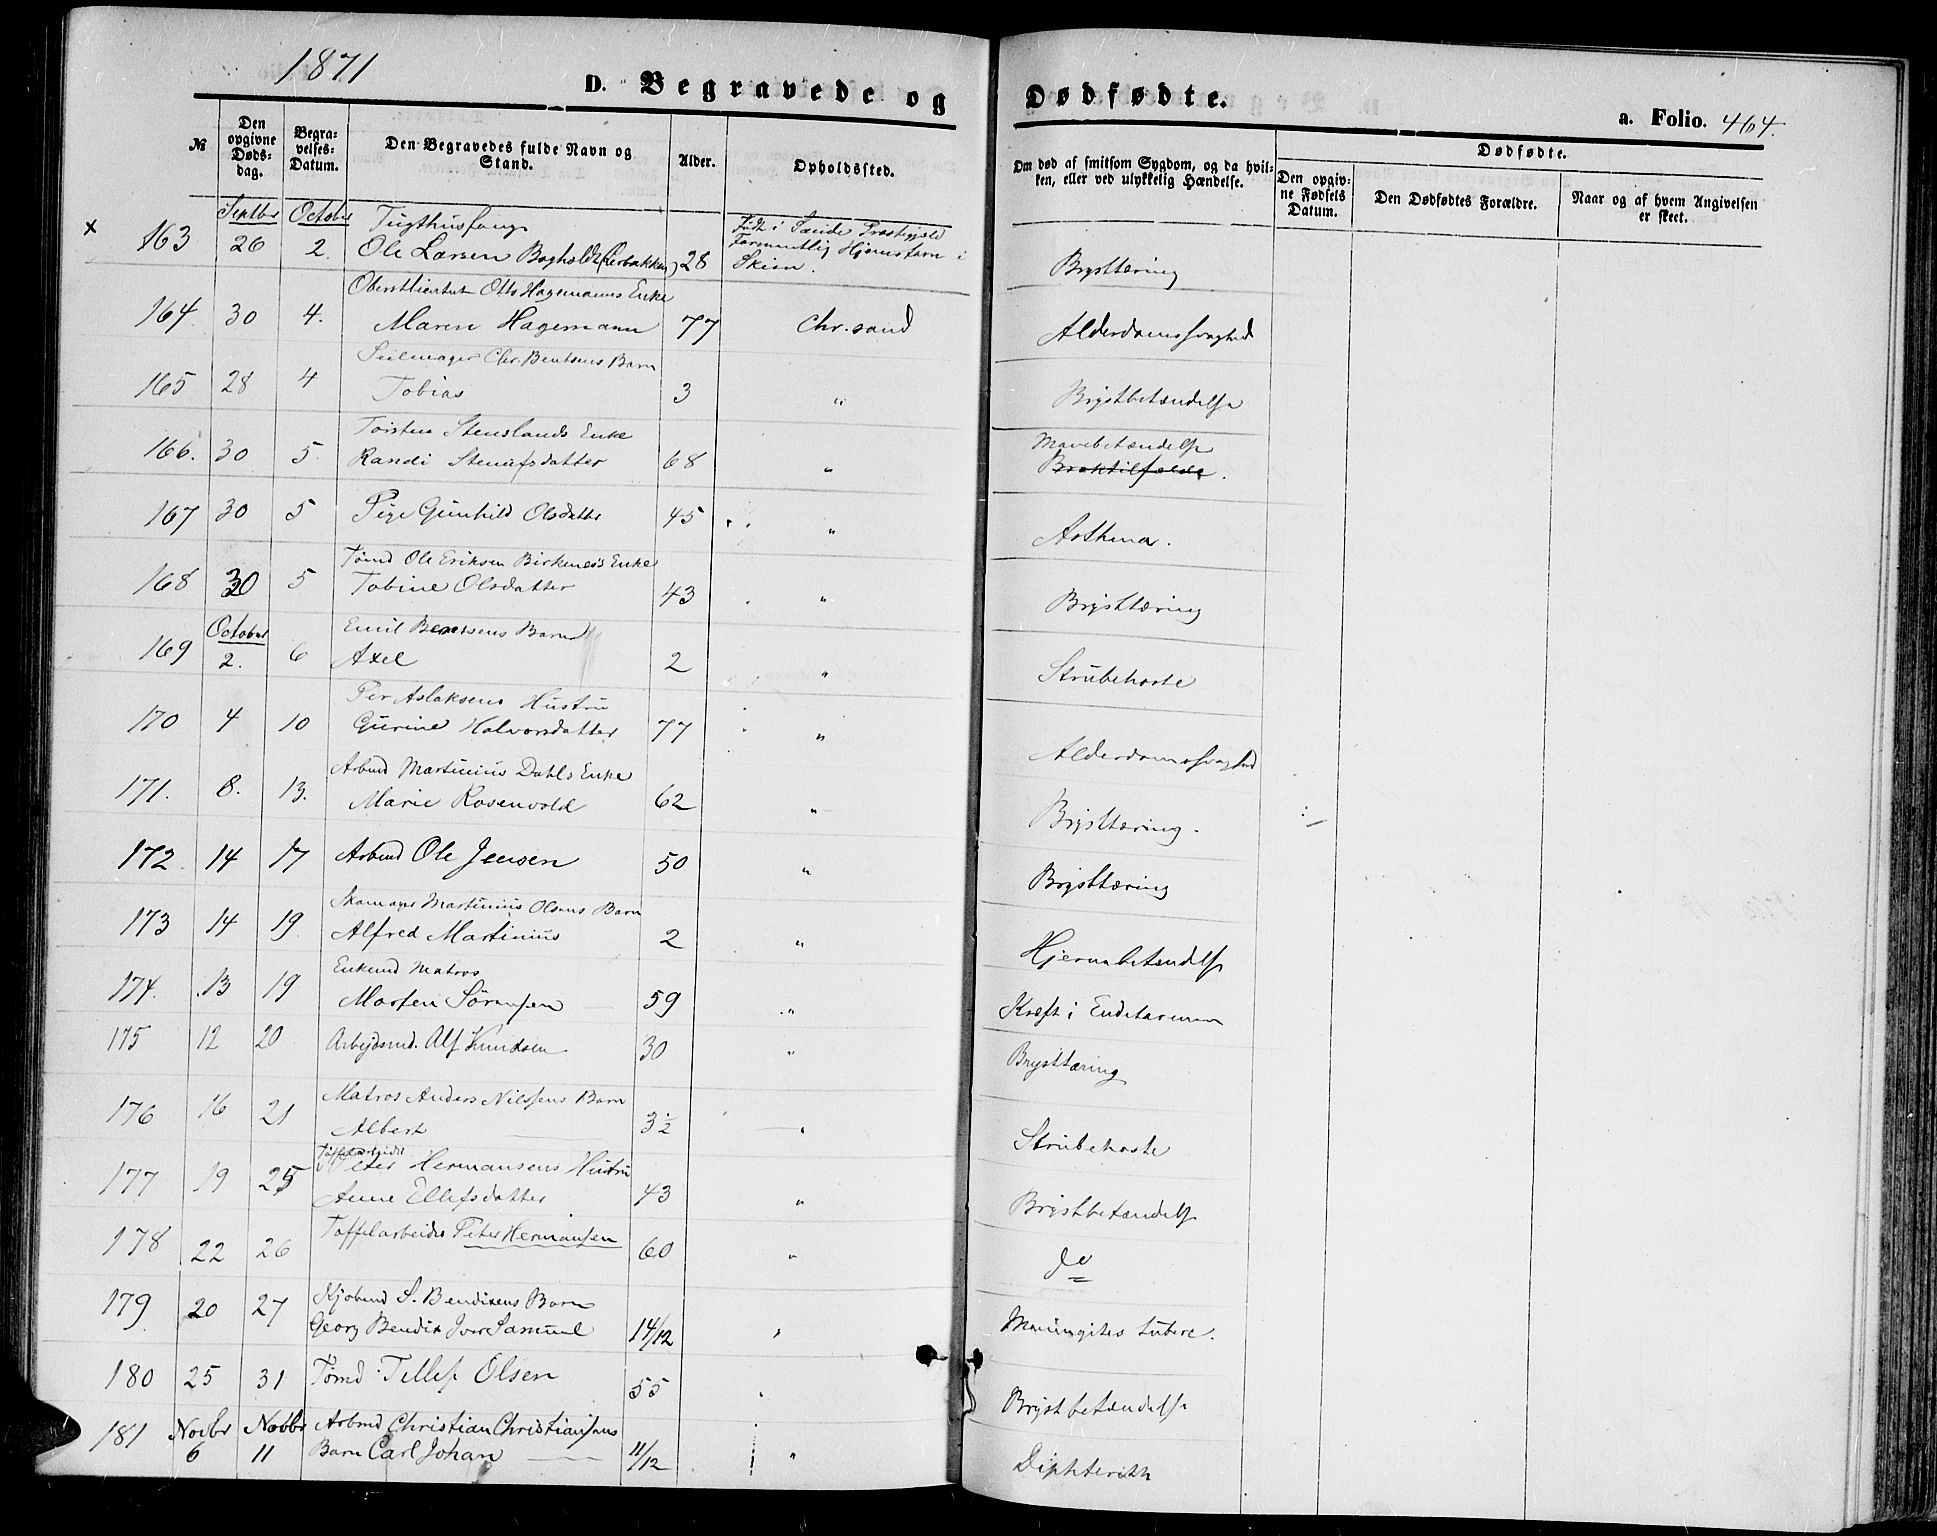 1871
D. Begravede og Dødfødte.
a. Folio. 464.
№ Den opgivne Døds-dag. Begra-velses-Datum. Den Begravedes fulde Navn og Stand. Alder. Opholdssted. Om død af smitsom Sygdom, og da hvil-ken, eller ved ulykkelig Hændelse. Dødfødte.
Den opgiv-ne Fødsels Datum. Den Dødfødtes Forældre. Naar og af hvem Angivelsen er skeet.
Septbr October Tugthusfange Født i Præstegjeld
x 163 26 2. Ole Larsen 28 Formentlig Hjemstavn i Skien. Brysttæring
Oberstlieutnt Otto Hagemanns Enke
164 30 4. Maren Hagemann 77 Chr.sand Alderdomssvaghed
Seilmager Chr. Bentsens Barn
165 28 4 Tobias 3 " Brystbetændelse
Torsten Stenslands Enke Mavebetændelse
166. 30 5. Randi 68 " .
167 30 5 Pige Gunhild Olsdatter 45 " Asthma.
Tømd Ole Eriksen Birkenæs's Enke
168 30 5 Tobine Olsdatter 43 " Brysttæring
October Emil Berntsens Barn
169 2. 6 Axel 2 " Strubehoste
Per Aslaksens Hustru
170 4 10 Gurine Halvorsdatter 77 " Alderdomssvaghed
Arbmd Martinius Dahls Enke
171. 8. 13. Marie Rosenvold 62 " Brysttæring.
172. 14 17 Arbmd Ole Jensen 50 " Brysttæring
Skomager Martinius Olsens Barn
173 14 19. Alfred Martinius 2 " Hjernebetændelse
Enkemd Matros
174. 13 19 Morten Sørensen 59 " Kræft i Endetarmen
175 12 20 Arbejdsmd. Alf Knudsen 30 " Brysttæring
Matros Anders Nilssens Barn
176 16 21 Albert 3½ " Strubehoste
Toffelarbeider
Peter Hermansens Hustru
177 19 25 Anne Ellefsdatter 43 " Brystbetændelse
178 22 26 Toffelarbeider Peter Hermansen 60 " do
Kjøbmd S. Bendixens Barn
179 20 27 Georg Bendix Iver Samuel 14/12 " Meningites tuberc.
180 25 31 Tømd. Tellef Olsen 55 " Brystbetændelse
Novbr Novbr Arbmd Christian Christiansens
181 6 11 Barn Carl Johan 11/12 " Diphterith